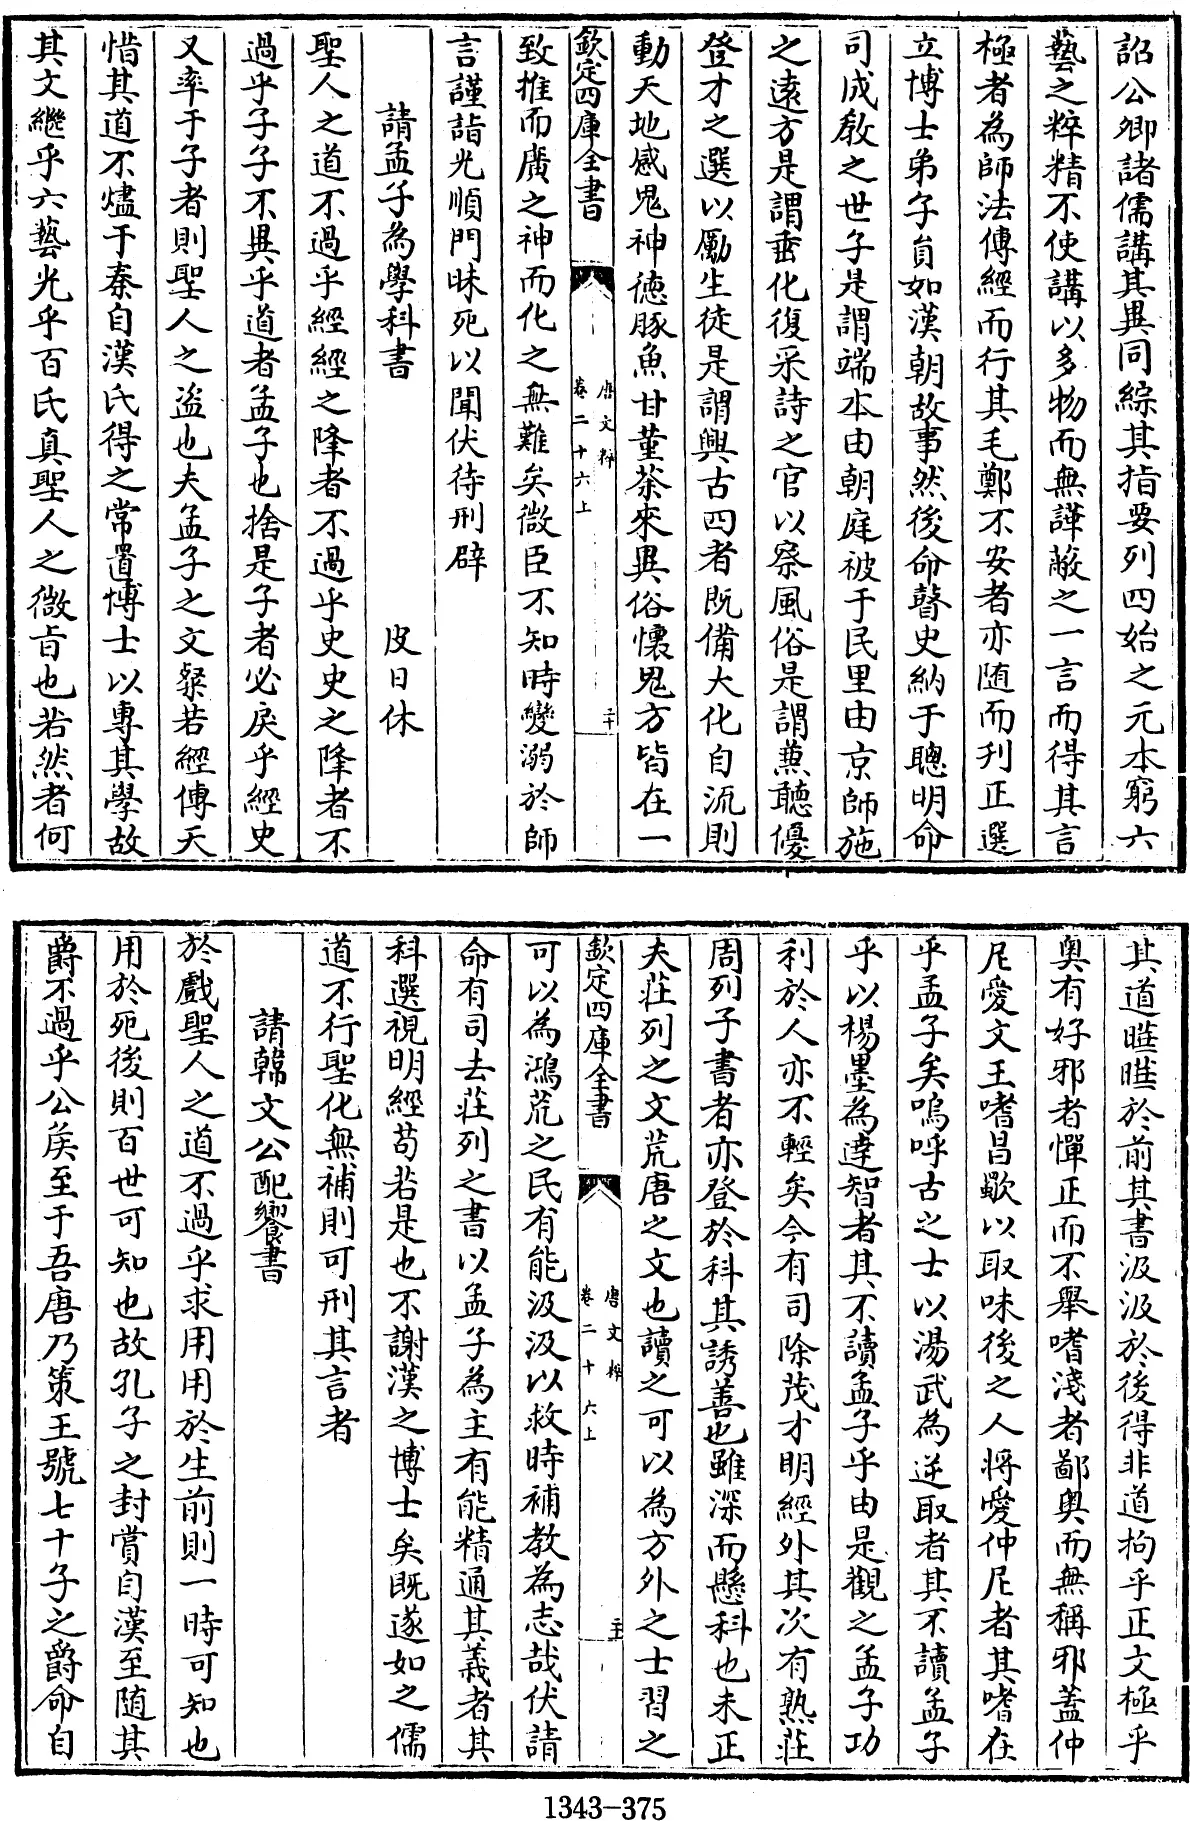 詔公卿諸儒講其異同綜其指要列四始之元本窮六
藝之粹精不使講以多物而無譁蔽之一言而得其言
極者為師法傳經而行其毛鄭不安者亦随而刋正選
立博士弟子員如漢朝故事然後命瞽史納于聰明命
司成教之世子是謂端本由朝庭被于民里由京師施
之遠方是謂垂化復采詩之官以察風俗是謂兼聽優
登才之選以勵生徒是謂興古四者既備大化自流則
動天地感鬼神徳豚魚甘堇荼來異俗懷鬼方皆在一
欽定四庫全書
唐文粹
卷二十六上
二十
致推而廣之神而化之無難矣微臣不知時變溺於師
言謹詣光順門昧死以聞伏待刑辟
請孟子為學科書 皮日休
聖人之道不過乎經經之降者不過乎史史之降者不
過乎子子不異乎道者孟子也捨是子者必戾乎經史
又率于子者則聖人之盜也夫孟子之文粲若經傳天
惜其道不燼于秦自漢氏得之常置博士以專其學故
其文繼乎六藝光乎百氏真聖人之微旨也若然者何
其道曄曄於前其書汲汲於後得非道拘乎正文極乎
奥有好邪者憚正而不舉嗜淺者鄙奥而無稱邪蓋仲
尼愛文王嗜昌歜以取味後之人將愛仲尼者其嗜在
乎孟子矣嗚呼古之士以湯武為逆取者其不讀孟子
乎以楊墨為達智者其不讀孟子乎由是觀之孟子功
利於人亦不輕矣今有司除茂才明經外其次有熟莊
周列子書者亦登於科其誘善也雖深而懸科也未正
夫莊列之文荒唐之文也讀之可以為方外之士習之
欽定四庫全書
唐文粹
卷二十六上
二十一
可以為鴻荒之民有能汲汲以救時補教為志哉伏請
命有司去莊列之書以孟子為主有能精通其義者其
科選視明經苟若是也不謝漢之博士矣既遂如之儒
道不行聖化無補則可刑其言者
請韓文公配饗書
於戲聖人之道不過乎求用用於生前則一時可知也
用於死後則百世可知也故孔子之封賞自漢至隨其
爵不過乎公侯至于吾唐乃策王號七十子之爵命自
1343-375